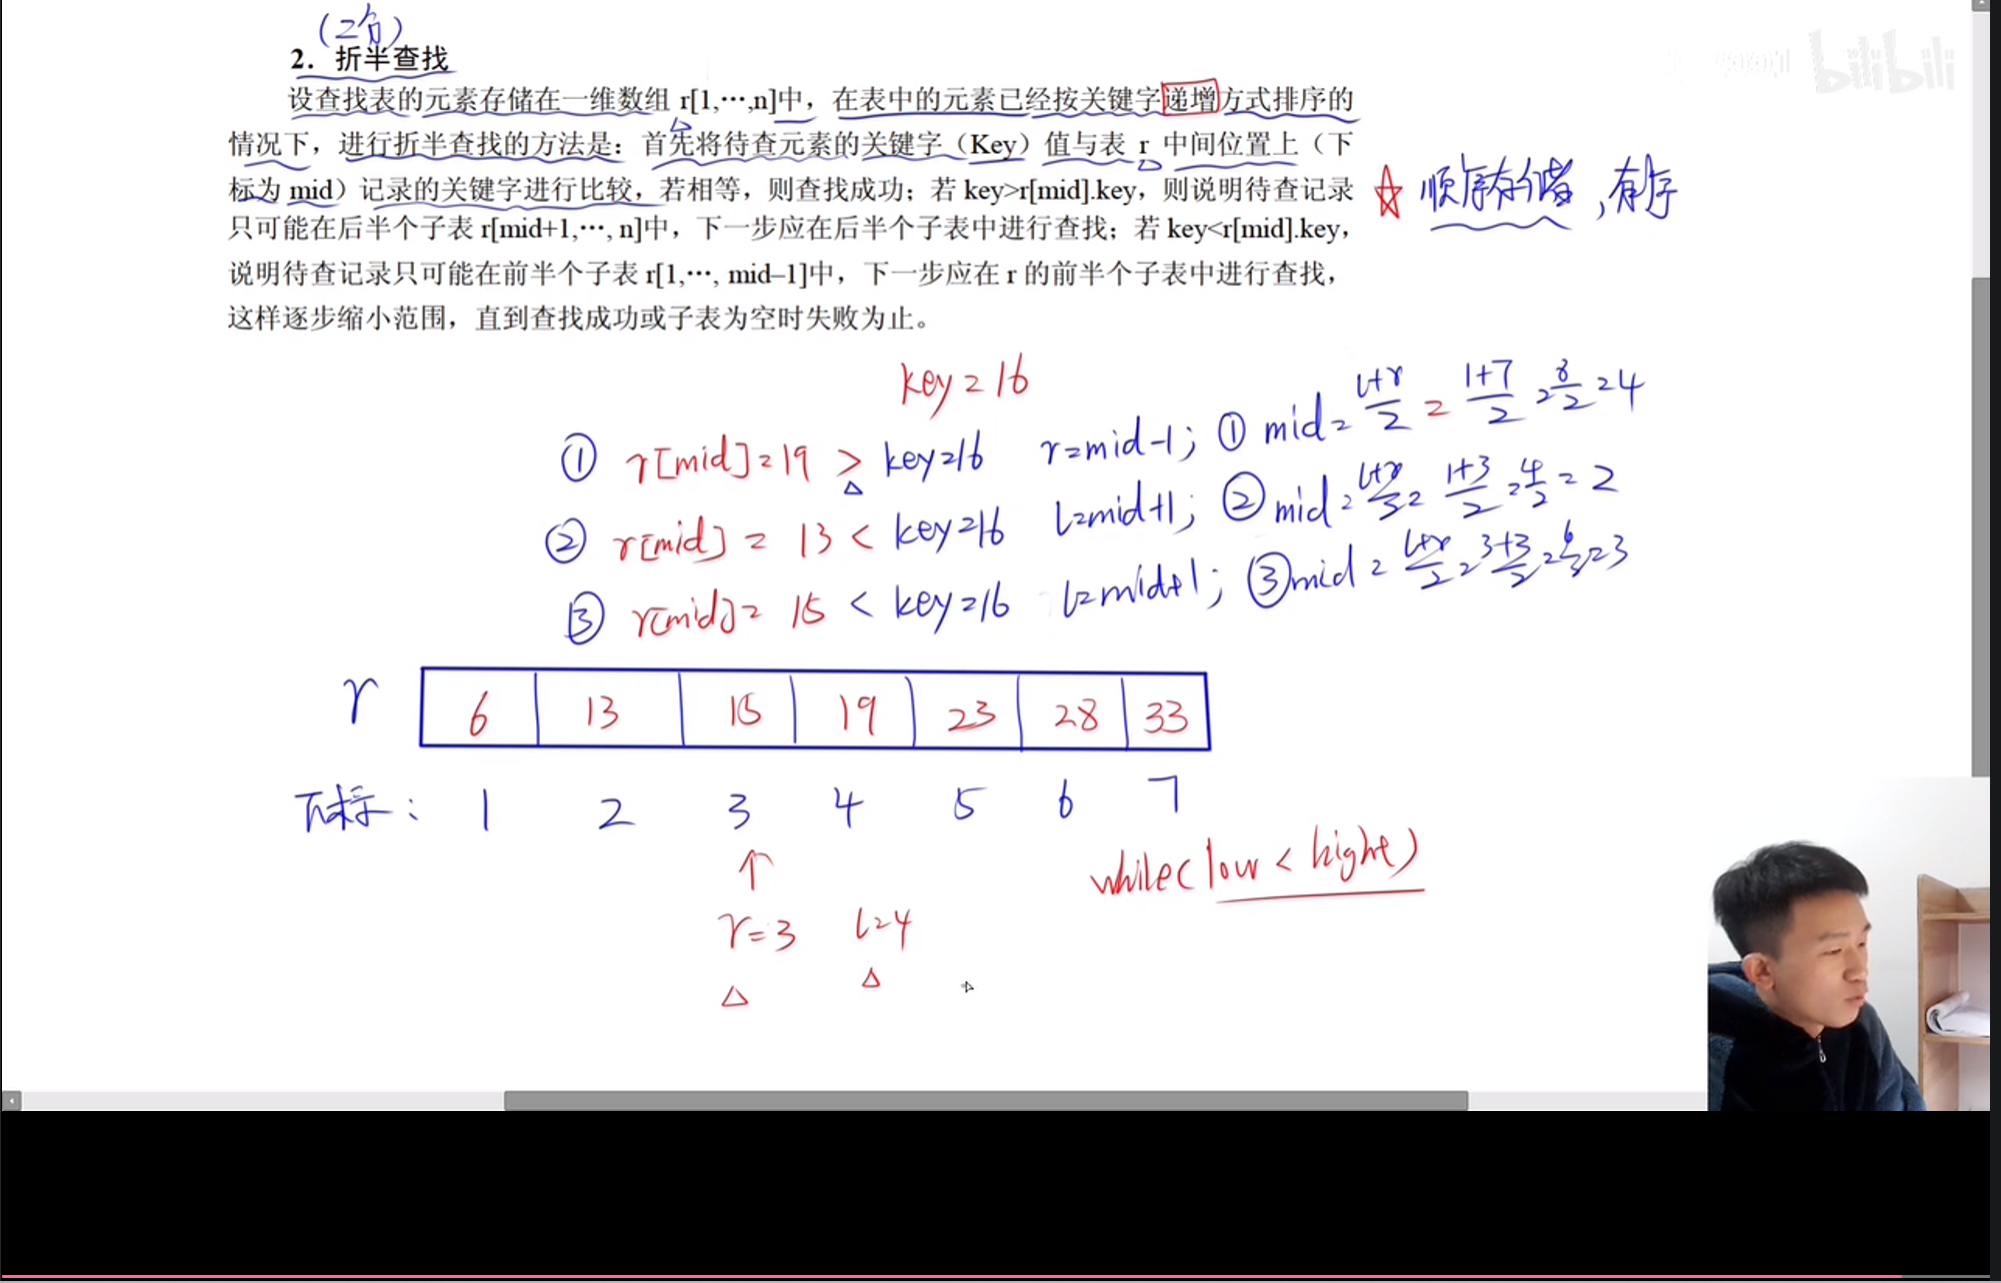 (2分)
2. 折半查找
设查找表的元素存储在一维数组 r[1,…,n]中，在表中的元素已经按关键字递增方式排序的
情况下，进行折半查找的方法是：首先将待查元素的关键字（Key）值与表 r 中间位置上（下
标为 mid）记录的关键字进行比较，若相等，则查找成功；若 key>r[mid].key，则说明待查记录
只可能在后半个子表 r[mid+1,…, n]中，下一步应在后半个子表中进行查找；若 key<r[mid].key，
说明待查记录只可能在前半个子表 r[1,…, mid–1]中，下一步应在 r 的前半个子表中进行查找，
这样逐步缩小范围，直到查找成功或子表为空时失败为止。
顺序存储，有序
key=16
① r[mid]=19 > key=16 r=mid-1; ① mid=l+r/2=1+7/2=8/2=4
② r[mid]=13 < key=16 l=mid+1; ② mid=l+r/2=1+3/2=4/2=2
③ r[mid]=15 < key=16 l=mid+1; ③ mid=l+r/2=3+3/2=6/2=3
r 6 13 15 19 23 28 33
下标： 1 2 3 4 5 6 7
↑
r=3 l=4
while(low < hight)
bilibili